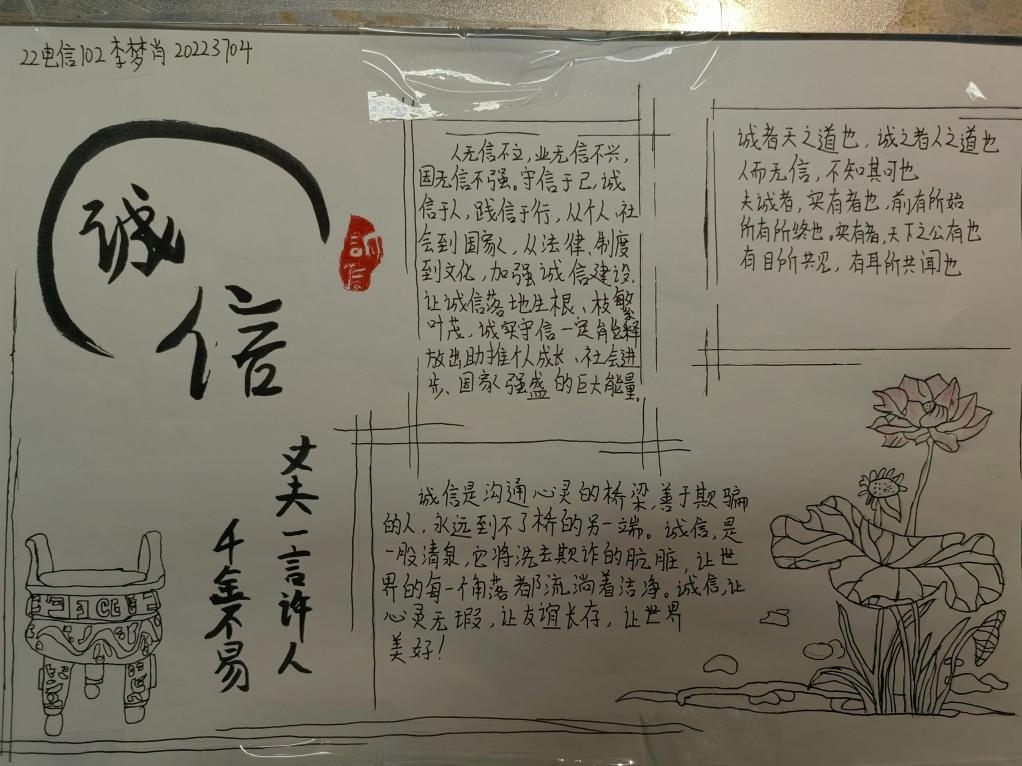 22电信102 李梦肖 20223704
诚
信
诚信
丈夫一言许人
千金不易
人无信不立,业无信不兴,
国无信不强。守信于己,诚
信于人,践信于行,从个人、社
会到国家,从法律、制度
到文化,加强诚信建设,
让诚信落地生根、枝繁
叶茂,诚实守信一定能释
放出助推个人成长、社会进
步、国家强盛的巨大能量。
诚者天之道也,诚之者人之道也
人而无信,不知其可也
夫诚者,实有者也,前有所始
所有所终也。实有者,天下之公有也
有目所共见,有耳所共闻也
诚信是沟通心灵的桥梁,善于欺骗
的人,永远到不了桥的另一端。诚信,是
一股清泉,它将洗去欺诈的肮脏,让世
界的每一个角落都流淌着洁净。诚信,让
心灵无瑕,让友谊长存,让世界
美好!